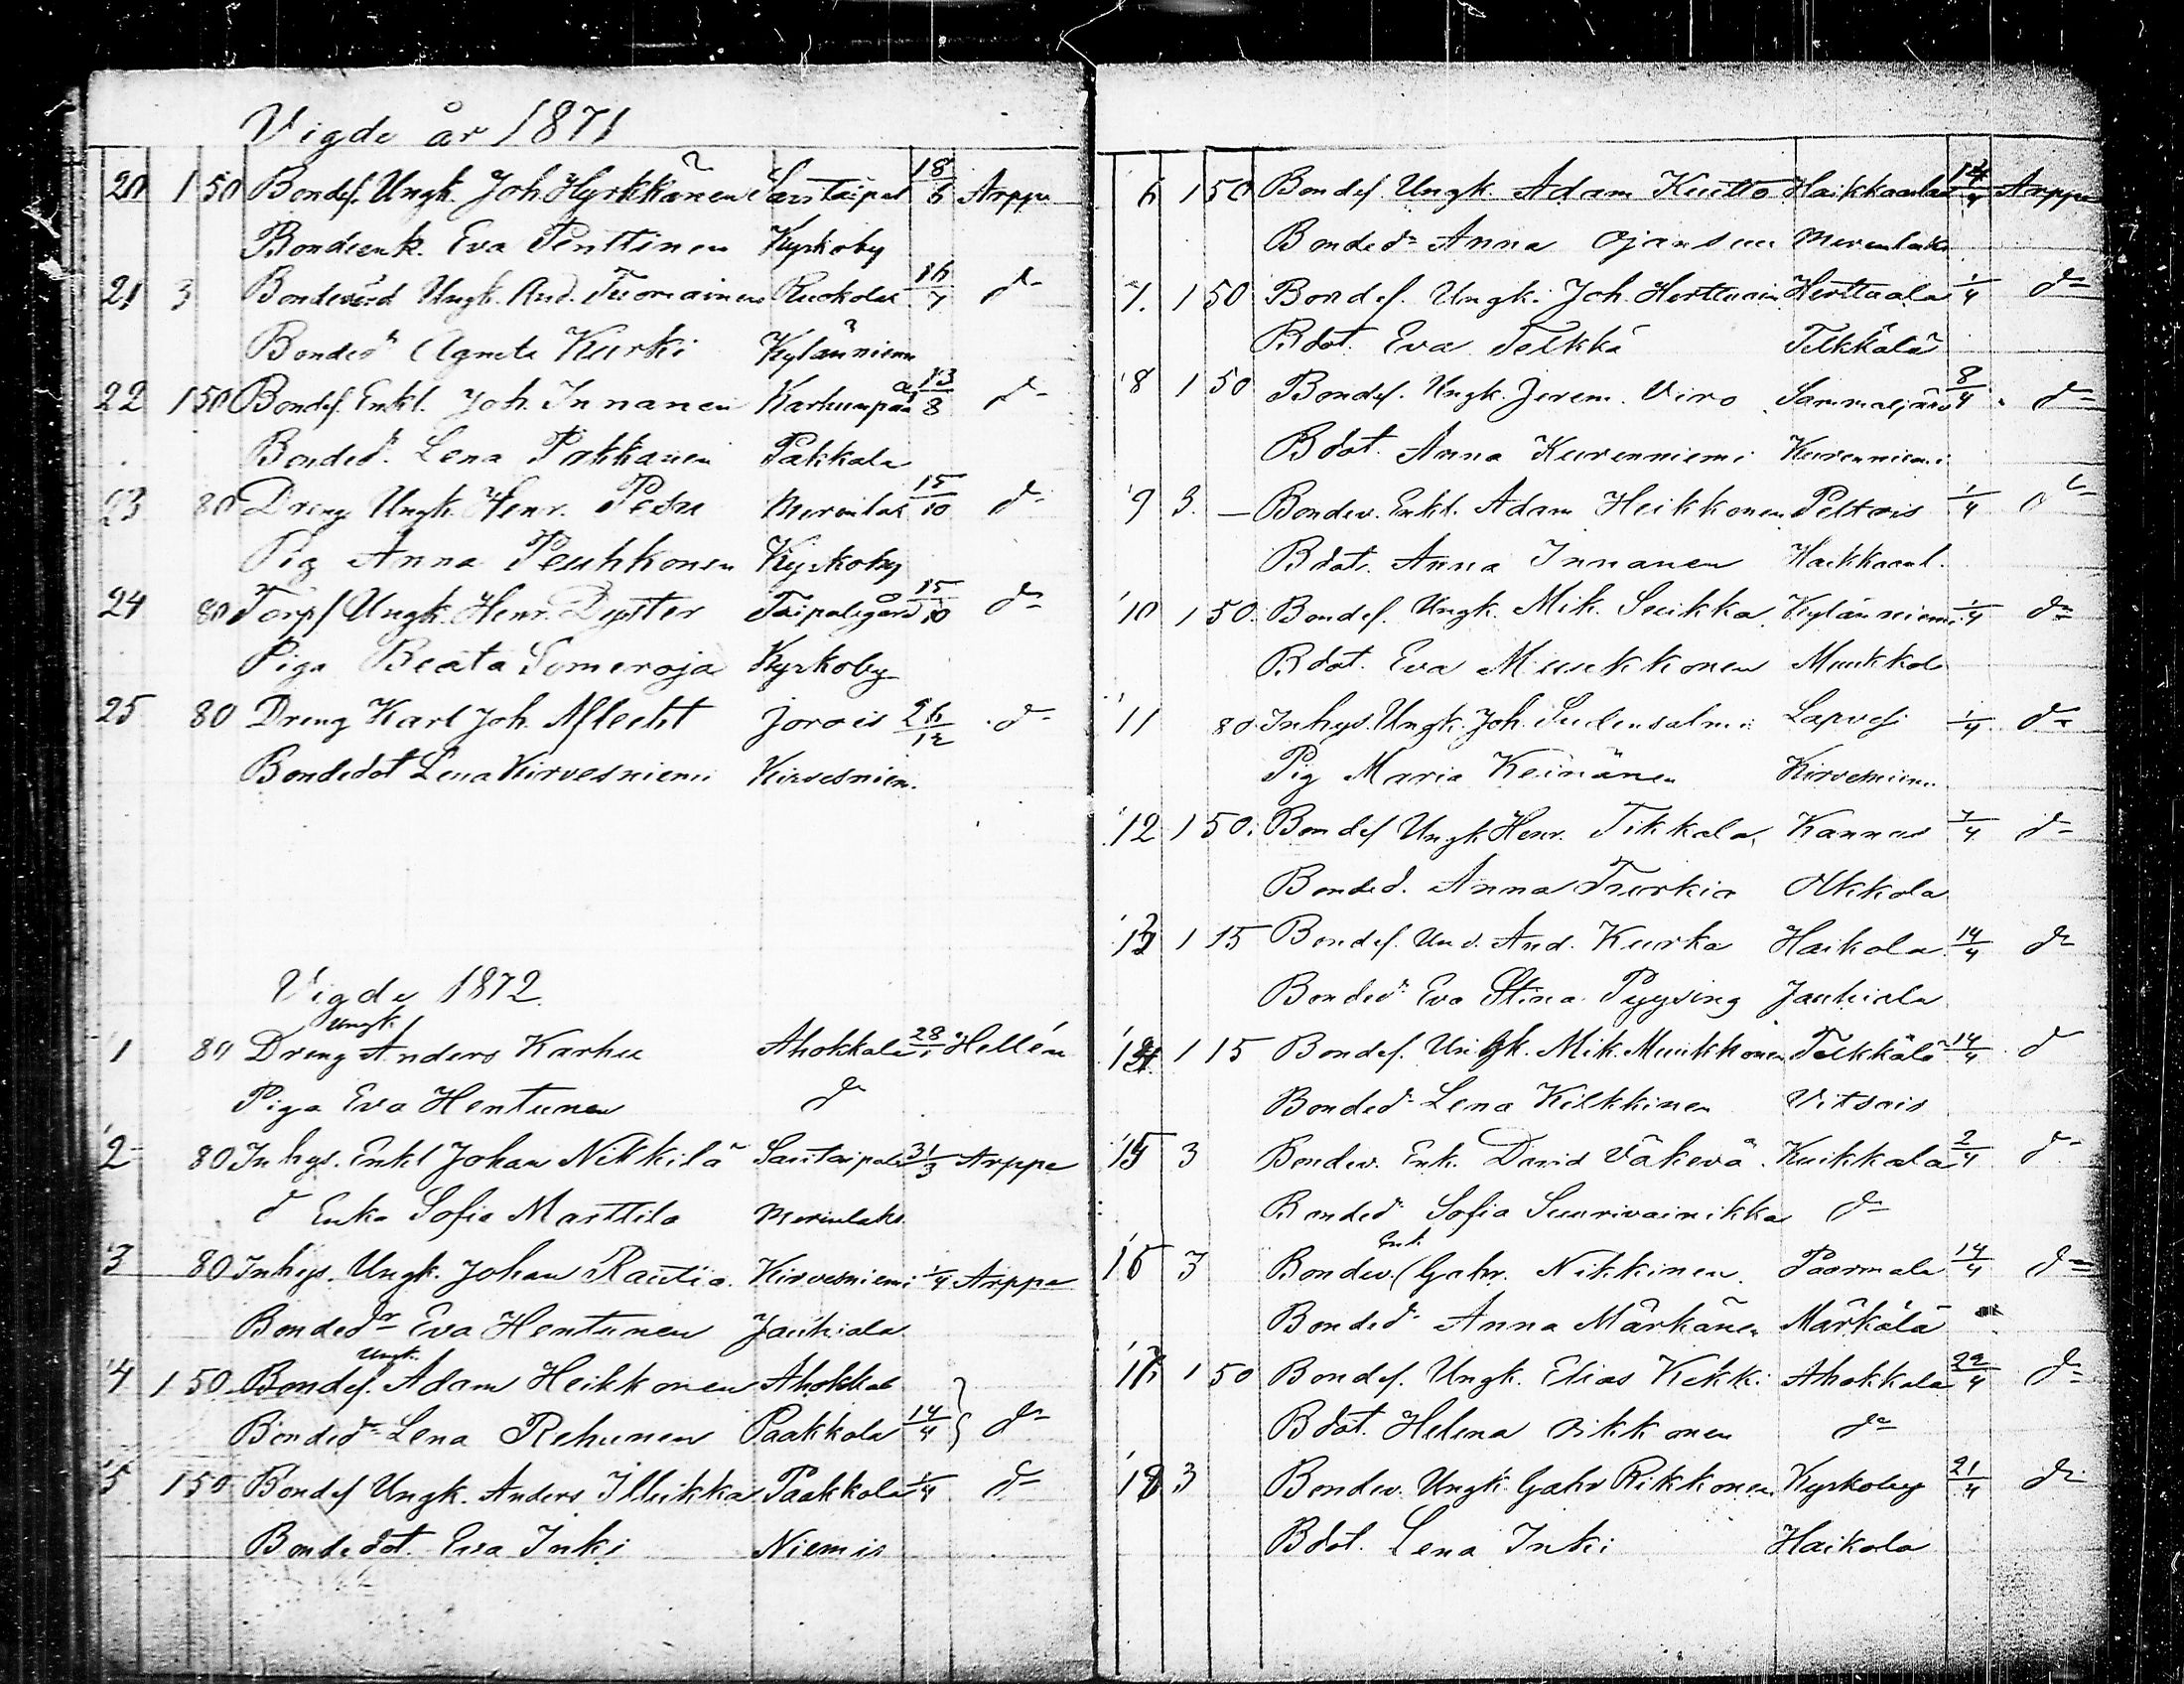 Vigde år 1871
20 1 50 Bondes. Ungk. Joh Hyrkkänen Savitaipal 18/6 Arppe
Bondeenk. Eva Penttinen Kyrkoby
21 3 Ungk. And. Tuomainen Ruokolax 16/7 d:o
Bonded:r Agneta Kurki Kylänniem
22 1 50 Bondes. Enkl. Joh. Innanen Karhunpää 13/8 d:o
Bonded:r Lena Pakkanen Pakkala
23 80 Dreng Ungk. Henr. Petri Merenlak 15/10 d:o
Pig Anna Peuhkonen Kyrkoby
24 80 Torps Ungk. Henr. Dyster Taipalsgård 15/10 d:o
Piga Beata Someroja Kyrkoby
25 80 Dreng Karl Joh. Aflecht Jorois 26/12 d:o
Bondedot Lena Kirvesniemi Kirvesniem.
Vigde 1872
Ungk
1 80 Dreng Anders Karhu Ahokkala 28/1 Hellén
Piga Eva Hentunen d:o
2 80 Inhys. Enkl Johan Nikkilä Savitaipale 31/3 Arppe
d Enka Sofia Marttila Merenlaks
3 80 Inhys. Ungk. Johan Rautia Kirvesniemi 1/4 Arppe
Bonded:r Eva Hentunen Jauhiala
Ungk.
4 1 50 Bondes. Adam Heikkonen Ahokkal
Bonded:r Lena Rehunen Paakkola 14/4 d:o
5 1 50 Bondes Ungk. Anders Illukka Paakkola 1/4 d:o
Bondedot. Eva Inki Niemis
6 1 50 Bondes. Ungk. Adam Kuitto Haikkaanlax Arppe
Bonded:r Anna Ojansuu Merenlaks
7. 1 50 Bondes. Ungk. Joh. Herttuain Herttuala 1/4 d:o
Bdot. Eva Telkkä Telkkälä
8 1 50 Bondes. Ungk. Jerem. Viro Sammaljärv 8/4 d:o
Bdot. Anna Kurenniemi Kurenniemi
9 3. — Bondev. Enkl. Adam Heikkonen Peltois 1/4 d:o
Bdot. Anna Innanen Haikkaanl.
10 1 50. Bondes. Ungk. Mik. Suikka Kylänniemi 1/4 d:o
Bdot. Eva Muukkonen Muukkol
11 80 Inhys. Ungk. Joh. Sudensalmi Lapvesi 1/4 d:o
Pig Maria Keinänen Kirvesniem.
12 1 50. Bondes Ungk Henr. Tikkala Kannus 7/4 d:o
Bonded. Anna Turkia Olkkola
13 1 15 Bondes. And. Kurka Haikola 14/4 d:o
Bonded:r Eva Stina Pyysing Jauhiala
14 1 15 Bondes. Ungk. Mik. Muukkonen Telkkälä 14/4 d
Bonded:r Lena Kilkkinen Vitsais
15 3 Bondev. Enk. David Väkevä Kuikkala 2/4 d:o
Bonded:r Sofia Suurivainikka d:o
Enk
16 3 Bondev. Gabr. Nikkinen Paarmala 14/4 d:o
Bonded:r Anna Märkänen Märkälä
17 1 50 Bondes. Ungk. Elias Kekki Ahokkala 22/4 d:o
Bdot. Helena Rikkonen d:o
18 3 Bondev. Ungk. Gabr Rikkonen Kyrkoby 21/4 d:o
Bdot. Lena Inki Haikola